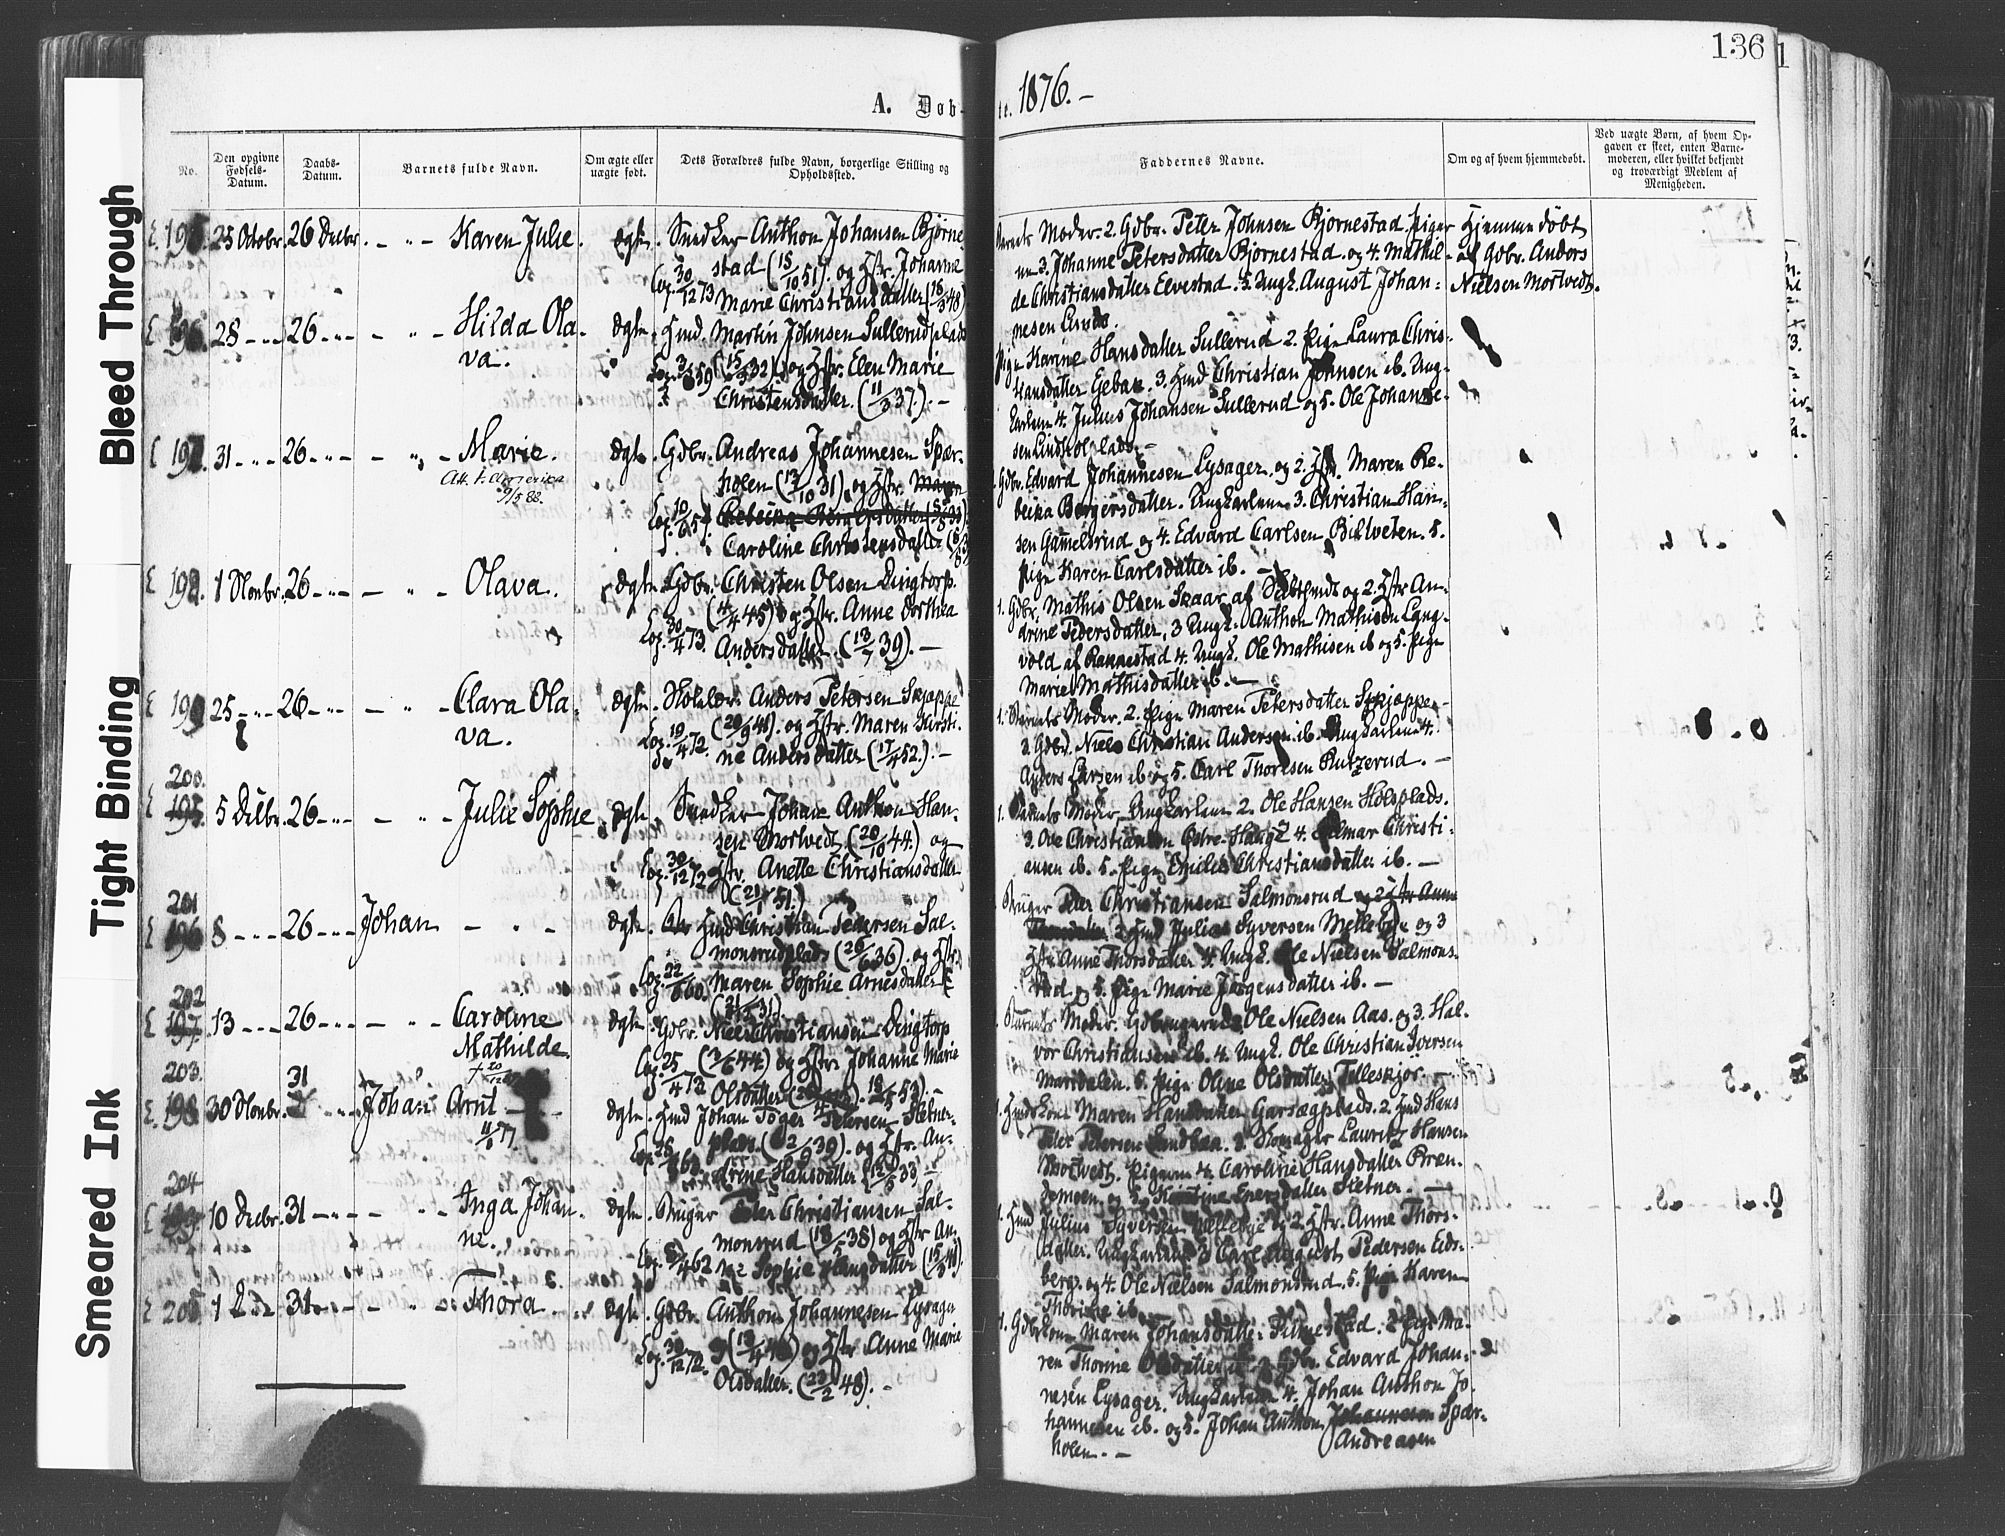 136
A. Døb-
te. 1876. –
Bleed Through
Tight Binding
Smeared Ink
No.
Den opgivne Fødsels-Datum.
Daabs-Datum.
Barnets fulde Navn.
Om ægte eller uægte født.
Dets Forældres fulde Navn, borgerlige Stilling og Opholdssted.
Faddernes Navne.
Om og af hvem hjemmedøbt.
Ved uægte Børn, af hvem Op-
gaven er skeet, enten Barne-
moderen, eller hvilket bekjendt
og troværdigt Medlem af
Menigheden.
195. 25 Octobr. 26 Decbr. – „ – Karen Julie. Ægte. Snedker Anthon Johansen Bjørne-
stad (15/10 51). og Hstr. Johanne
Cop. 30/12 73 Marie Christiansdatter (18/3 48).
Barnets Moder. 2. Gdbr. Peter Johnsen Bjørnestad Piger-
ne 3. Johanne Petersdatter Bjørnestad og 4. Mathil-
de Christiansdatter Elvestad. 5 Ungk. August Johan-
nesen Lunde.
Hjemmedøbt
af Gdbr. Anders
Nielsen Mortvedt.
196 28 – „ – 26 – „ – – „ – Hilda Ola-
va.
Ægte. Hmd. Martin Johnsen Sullerudplads
(15/3 32) og Hstr. Elen Marie
Christensdatter. (11/3 37). –
Pige Karine Hansdatter Sullerud 2. Pige Laura Chris-
Hansdatter Egebak. 3. Hmd Christian Johnsen ib. Ung-
karlene 4. Julius Johansen Sullerud og 5. Ole Johanne-
sen Lindholplads. –
197. 31 – „ – 26 – „ – – „ – Marie.
Att. t. Amerika
9/5 88.
Ægte. Gdbr. Andreas Johannesen Spær-
holen (13/10 31). og Hstr. Maren
Cop. 10/ 65 Rebecka Børgersdatter
Caroline Christensdatter
Gdbr. Edvard Johannesen Lysager. og 2. Hstr. Maren Re-
becka Børgersdatter. Ungkarlene 3. Christian Han-
sen Gamelsrud og 4. Edvard Carlsen Bilveten. 5.
Pige Karen Carlsdatter ib. –
198. 1 Novbr. 26 – „ – – „ – Olava. Ægte. Gdbr. Christen Olsen Dingtorp.
(4/4 45) og Hstr. Anne Dorthea
Cop. 30/4 73. Andersdatter. (13/7 39). –
1. Gdbr. Mathis Olsen Skaar af og 2. Hstr An-
drine Pedersdatter, 3 Ungk. Anthon Mathisen Lang-
vold af Rannestad 4. Ungk. Ole Mathisen ib og 5. Pige
Marie Mathisdatter ib. –
199 25 – „ – 26 – „ – – „ – Clara Ola-
va.
Ægte. Skolelær. Anders Petersen Skjøppe
(20/9 48). og Hstr. Maren Kirsti-
Cop. 19/4 72. ne Andersdatter (17/4 52.). –
1. Barnets Moder. 2. Pige Maren Petersdatter Skjøppe
3. Gdbr. Niels Christian Andersen ib. Ungkarlene 4.
Anders Larsen ib og 5. Carl Thoresen Rutzerud. –
200.
195. 5 Decbr. 26 – „ – – „ – Julie Sophie Ægte. Snedker Johan Anthon Han-
sen Mortvedt, (20/10 44.) og
Cop. 30/12 72 Hstr. Anette Christiansdatter
(21/1 51.)
1. Barnets Moder, Ungkarlene 2. Ole Hansen Holsplads.
3. Ole Christiansen Østre-Haug 4. Hilmar Christi-
ansen ib. 5. Pige Emilie Christiansdatter ib. –
201
196 8 – „ – 26 – „ – Johan – „ – Ægte. Hmd Christian Pedersen Sal-
monsrudplads (26/6 36). og Hstr.
Cop. 22/ 60. Maren Sophie Arnesdatter
(21/ 31).
Bruger Peder Christiansen Salmonsrud og 2 Hstr Anne
Thorsdatter 2 Hmd Julius Syversen Melleby. og 3
Hstr Anne Thorsdatter 4. Ungk. Ole Nielsen Salmons-
rud og 5. Pige Marie Jørgensdatter ib. –
202
197. 13 – „ – 26 – „ – – „ – Caroline
Mathilde.
Ægte. Gdbr. Niels Christiansen Dingtorp
Cop. 25/4 73 (3/6 44.) og Hstr. Johanne Marie
Olsdatter 18/5 53). –
Barnets Moder. Gdbrugerne 2. Ole Nielsen Aas. og 3. Hal-
vor Christiansen ib. 4. Ungk. Ole Christian Iversen
Mansdalen. 5. Pige Oline Olsdatter Tølleskjør. –
203.
198 30 Novbr. 31 – „ – Johan Arnt – –
11/6 77
Ægte. Hmd Johan Peter Petersen Stetner-
plads. (2/9 39). og Hstr. An-
Cop. drene Hansdatter
1. Hmdskone Maren Hansdatter Garsægplads. 2 Hmd Hans
Peter Petersen Sandbak. 3 Skomager Lauritz Hansen
Mortvedt. Pigerne 4. Caroline Hansdatter Bræn-
demoen og 5. Karstine Eversdatter Stetner. –
204
199 10 Decbr. 31 – „ – – „ – Inga Johan-
ne.
Ægte. Bruger Peder Christiansen Sal-
monsrud (18/ 38) og Hstr An-
Cop. 8/4 62 ne Sophie Hansdatter
1. Hmd Julius Syversen Melleby og 2 Hstr. Anne Thors-
datter. Ungkarlene 3 Carl August Pedersen Eids-
berg. og 4. Ole Nielsen Salmonsrud. 5. Pige Karen
Thorine ib. –
205 1 Decbr. 31 – „ – – „ – Thora. Ægte. Gdbr. Anthon Johannesen Lysager
Cop. 30/12 72. og Hstr. Anne Marie
Olsdatter. (23/2 48). –
1. Gdbrkone Maren Johansdatter Rinnestad. 2 Pige Ma-
ren Thorine Olsdatter ib 3 Gdbr. Edvard Johan-
nesen Lysager. Ungkarlene 4. Johan Anthon Jo-
hannesen ib. og 5. Johan Anthon Johannesen Spær-
Andreasen
holen. –